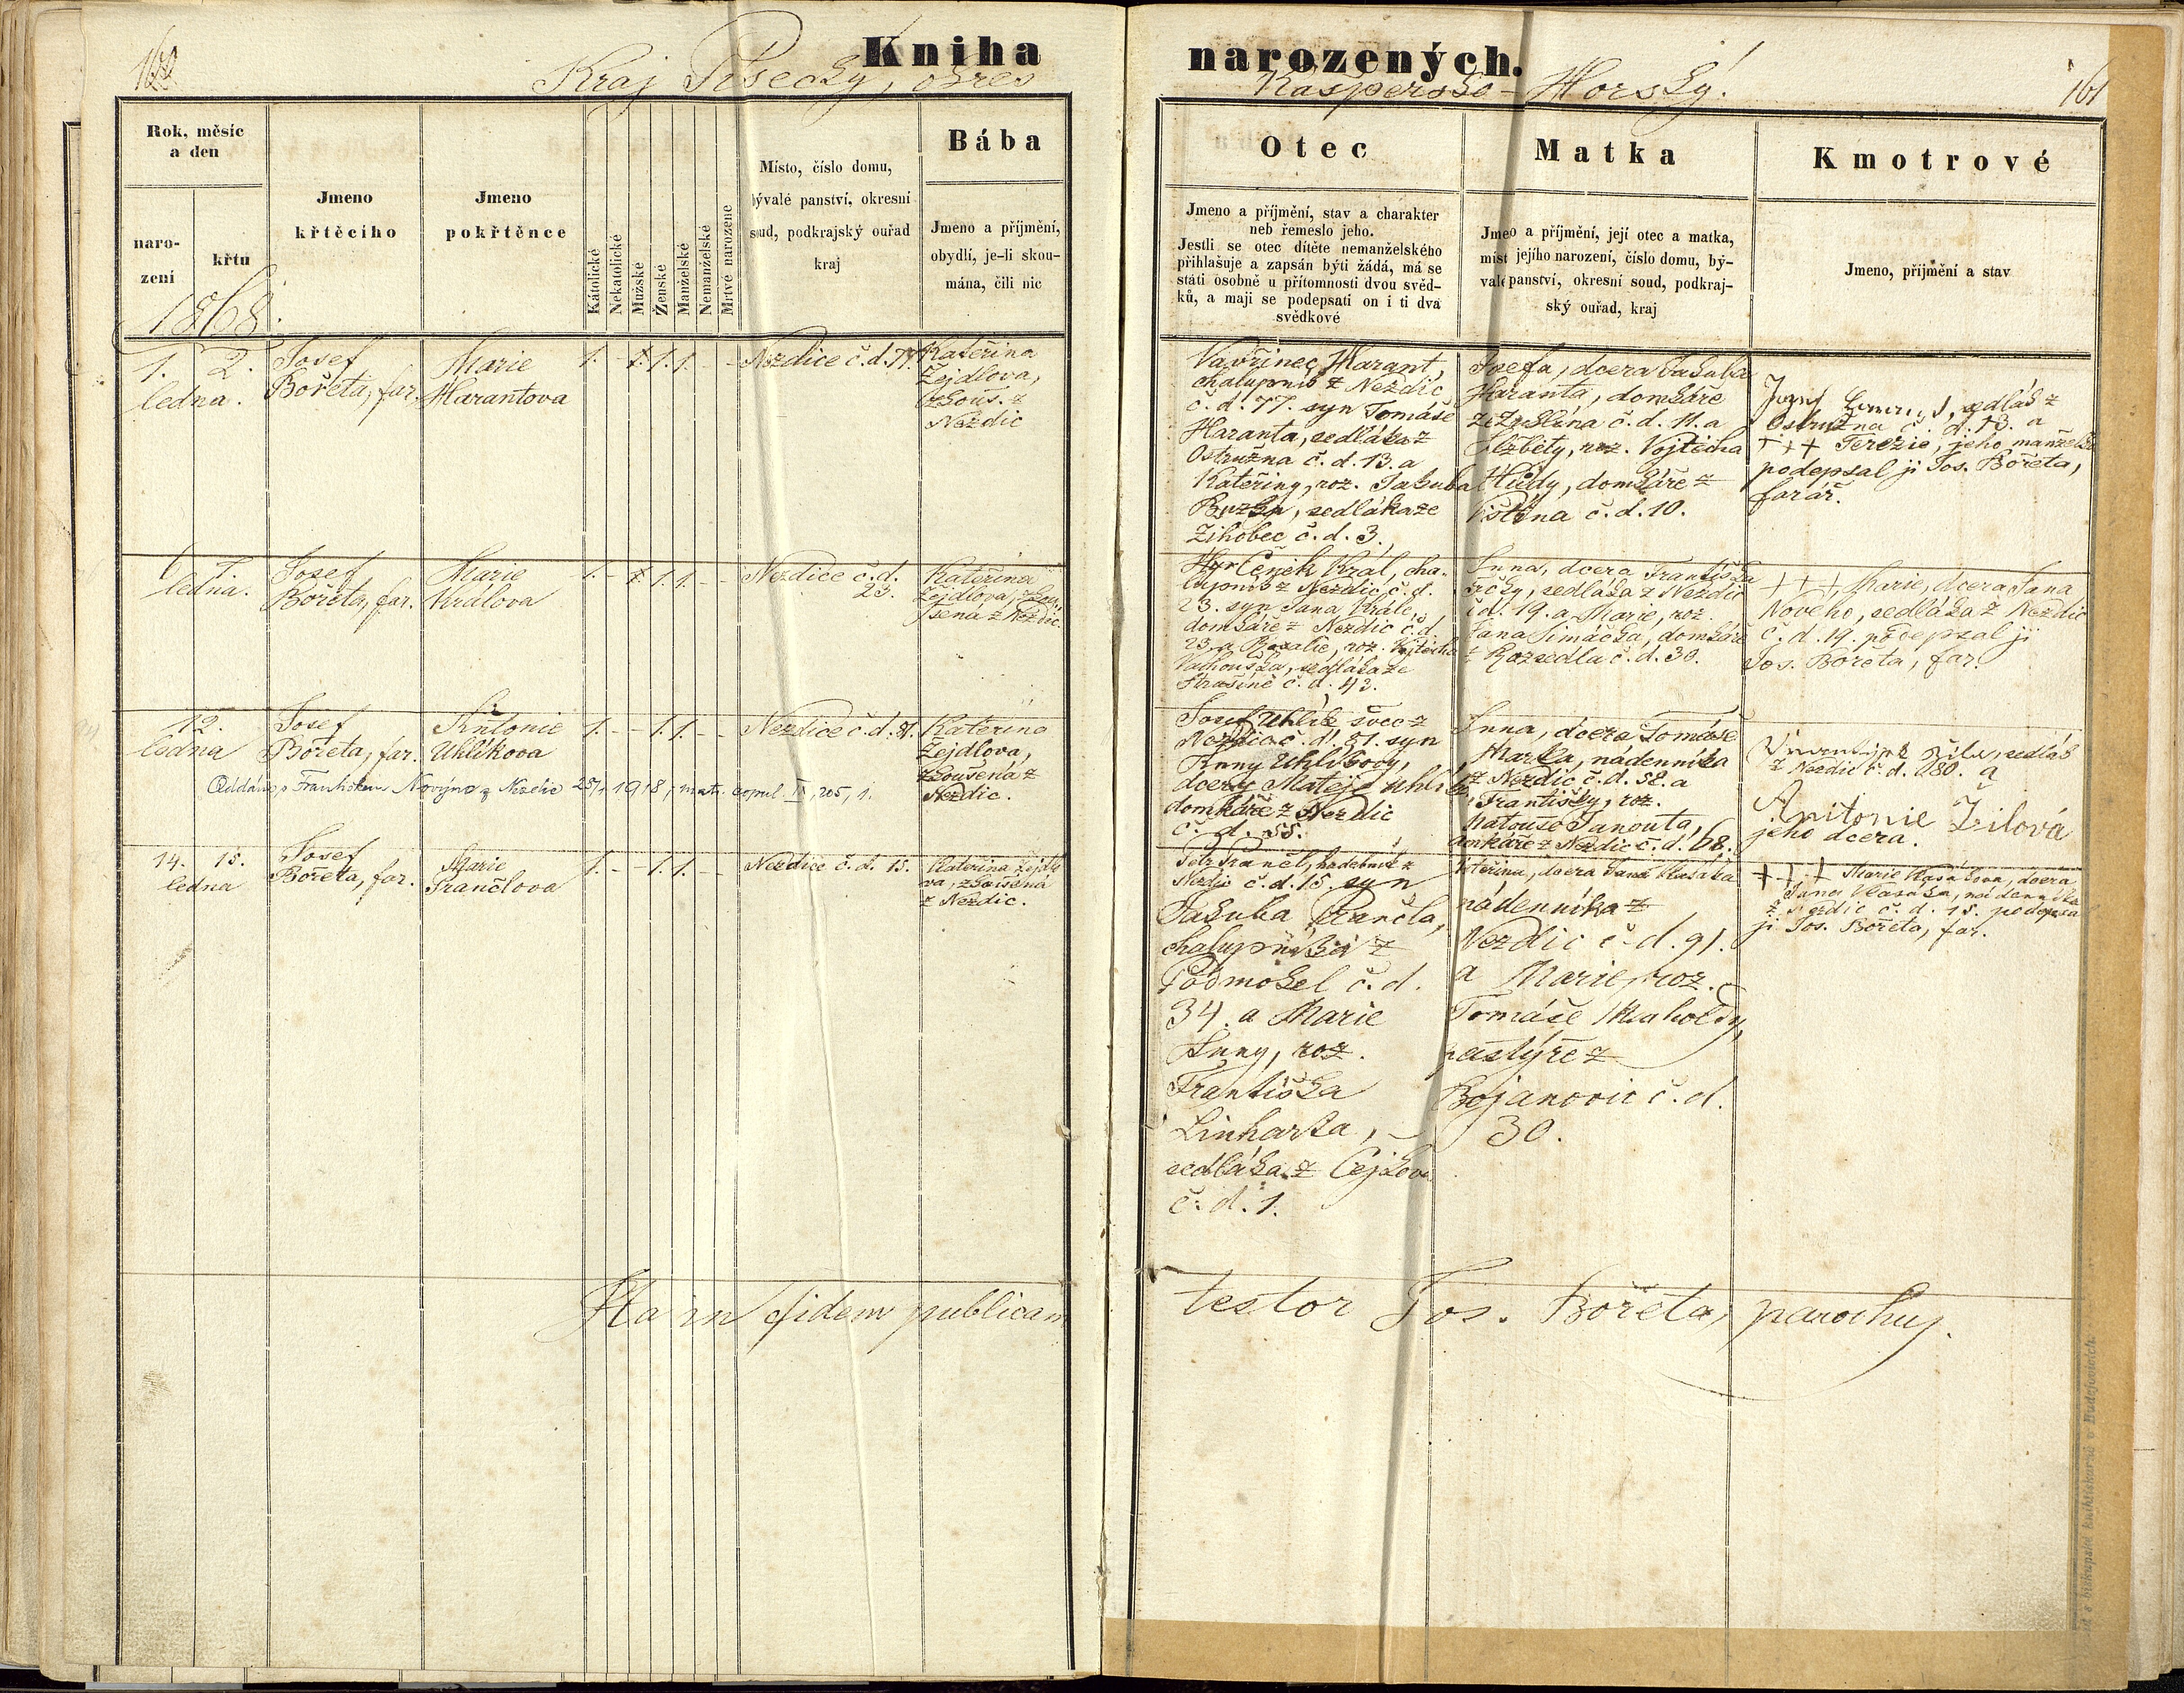 160
Kniha
narozených.
Kraj Písecký, okres
Kašpersko-Horský.
161
Rok, měsíc
a den
naro-
zení
křtu
Jmeno
křtěcího
Jmeno
pokřtěnce
Kátolické
Nekatolické
Mužské
Ženské
Manželské
Nemanželské
Mrtvě narozene
Místo, číslo domu,
bývalé panství, okresní
soud, podkrajský ouřad
kraj
Bába
Jmeno a příjmení,
obydlí, je-li skou-
mána, čili nic
Otec
Jmeno a příjmení, stav a charakter
neb řemeslo jeho.
Jestli se otec dítěte nemanželského
přihlašuje a zapsán býti žádá, má se
státi osobně u přítomnosti dvou svěd-
ků, a mají se podepsati on i ti dva
svědkové
Matka
Jmeno a příjmení, její otec a matka,
míst jejího narození, číslo domu, bý-
valé panství, okresní soud, podkraj-
ský ouřad, kraj
Kmotrové
Jmeno, přijmění a stav
1868.
1. 2.
ledna.
Josef
Bořeta, far.
Marie
Harantova
1. - 1. 1. - -
Nezdice č.d. 77.
Kateřina
Žejdlova,
zkouš. z
Nezdic
Vavřinec Harant,
chalupník z Nezdic
č. d. 77. syn Tomáše
Haranta, sedláka z
Ostružna č. d. 13. a
Kateřiny, roz. Jakuba
sedláka ze
Žihobec č. d. 3.
Josefa, dcera Jakuba
Haranta, domkáře
č. d. 11. a
Alžbety, roz. Vojtěcha
domkáře z
č. d. 10.
sedlák z
Ostružna č. d. 13. a
+++ Terezie, jeho manželka
podepsal ji Jos. Bořeta,
farář.
6. 7.
ledna.
Josef
Bořeta, far.
Marie
Králova
1. - 1. 1. - -
Nezdice č. d.
23.
Kateřina
Žejdlova, zkou-
šená z Nezdic.
Čeněk Král, cha-
lupník z Nezdic č. d.
23. syn Jana Krále,
domkáře z Nezdic č. d.
23. a Rosalie, roz. Vojtěcha
sedláka ze
Strašíně č. d. 43.
Anna, dcera Františka
Trčky, sedláka z Nezdic
č. d. 19. a Marie, roz.
Jana Šimáčka, domkáře
z Rozsedla č. d. 30.
+++ Marie, dcera Jana
Nového, sedláka z Nezdic
č. d. 19. podepsal ji
Jos. Bořeta, far.
12.
ledna
Josef
Bořeta, far.
Antonie
Uhlíkova
1. - - 1. 1. - -
Nezdice č. d. 81.
Kateřina
Žejdlova,
zkoušená z
Nezdic.
Oddána s Františkem Novým z Nezdic 25/1 1918, mat. copul. IV, 205, 1.
Josef Uhlík švec z
Nezdic č. d. 81. syn
Anny Uhlíkovy,
dcery Matěje Uhlíka,
domkáře z Nezdic
č. d. 55.
Anna, dcera Tomáše
Marka, nádenníka
z Nezdic č. d. 58. a
Františky, roz.
Matouše Janouta,
domkáře z Nezdic č. d. 68.
sedlák
z Nezdic č. d. 80. a
Antonie Žílová
jeho dcera.
14. 15.
ledna
Josef
Bořeta, far.
Marie
Frančlova
1. - - 1. 1. - -
Nezdice č. d. 15.
Kateřina Žejdlo-
va, zkoušená
z Nezdic.
Petr Frančl, hudebník z
Nezdic č. d. 15. syn
Jakuba Frančla,
chalupníka z
Podmokel č. d.
34. a Marie
Anny, roz.
Františka
Linharta,
sedláka z Čejkov
č. d. 1.
Kateřina, dcera Jana Vlasáka
nádenníka z
Nezdic č. d. 91.
a Marie, roz.
Tomáše
pastýře z
Bojanovic č. d.
30.
+++ Marie Vlasákova, dcera
Jana Vlasáka, nádenníka
z Nezdic č. d. 15. podepsal
ji Jos. Bořeta, far.
Ita in fidem publicam
testor Jos. Bořeta, parochus.